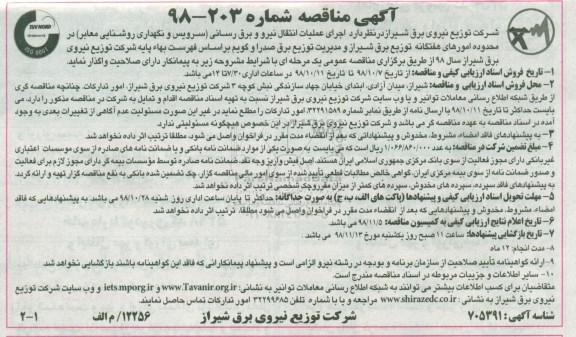 آگهی مناقصه شماره ۲۰۳-۹۸
TUV NORD
ISO 9001
شرکت توزیع نیروی برق شیراز در نظر دارد اجرای عملیات انتقال نیرو و برق رسانی (سرویس و نگهداری روشنایی معابر) در
محدوده امورهای هفتگانه توزیع برق شیراز و مدیریت توزیع برق صدرا و گویم براساس فهرست بهاء پایه شرکت توزیع نیروی
برق شیراز سال ۹۸ از طریق برگزاری مناقصه عمومی یک مرحله ای با شرایط مشروحه زیر به پیمانکار دارای صلاحیت واگذار نماید.
۱- تاریخ فروش اسناد ارزیابی کیفی و مناقصه: از تاریخ ۹۸/۱۰/۷ تا تاریخ ۹۸/۱۰/۱۱ در ساعات اداری ۷/۳۰ تا ۱۴ می باشد.
۲- محل فروش اسناد ارزیابی و مناقصه: شیراز، میدان آزادی، ابتدای خیابان جهاد سازندگی نبش کوچه ۳ شرکت توزیع نیروی برق شیراز، امور تدارکات. چنانچه مناقصه گری
از طریق شبکه اطلاع رسانی معاملات توانیر و یا وب سایت شرکت توزیع نیروی برق شیراز نسبت به تهیه اسناد مناقصه اقدام و تمایل به شرکت در مناقصه مذکور را دارد، می
بایست حداکثر تا تاریخ ۹۸/۱۰/۱۱ با ارسال نامه از طریق نمابر شماره ۳۲۲۹۱۵۸۹ امور تدارکات را مطلع نماید در غیر این صورت مسئولیت عدم آگاهی از تغییرات بعدی به وجود
آمده در اسناد مناقصه به عهده مناقصه گر می باشد و شرکت توزیع نیروی برق شیراز در این خصوص هیچگونه مسئولیتی ندارد.
۳- به پیشنهادهای فاقد امضاء، مشروط، مخدوش و پیشنهاداتی که بعد از انقضاء مدت مقرر در فراخوان واصل می شود، مطلقا ترتیب اثر داده نخواهد شد.
۴- مبلغ تضمین شرکت در مناقصه: به عدد ۱/۰۶۶/۸۶۰/۰۰۰ ریال است که می بایست به صورت یکی از موارد ضمانت نامه بانکی و یا ضمانت نامه های صادره از سوی موسسات اعتباری
غیر بانکی دارای مجوز فعالیت از سوی بانک مرکزی جمهوری اسلامی ایران هستند، اصل فیش واریز وجه نقد، ضمانت نامه صادره توسط مؤسسات بیمه گر دارای مجوز لازم برای فعالیت
و صدور ضمانت نامه از سوی بیمه مرکزی ایران، گواهی خالص مطالبات قطعی تأیید شده از سوی امور مالی مناقصه گزار، چک تضمین شده بانکی به نفع مناقصه گزار تهیه و ارائه گردد.
به پیشنهادهای فاقد سپرده، سپرده های مخدوش، سپرده های کمتر از میزان مقرر و چک شخصی ترتیب اثر داده نخواهد شد.
۵- مهلت تحویل اسناد ارزیابی کیفی و پیشنهادها (پاکت های الف، ب، ج) به صورت جداگانه: حداکثر تا پایان ساعت اداری روز شنبه ۹۸/۱۰/۲۸ می باشد. به پیشنهادهایی که فاقد
امضاء، مشروط، مخدوش و پیشنهادهایی که بعد از انقضاء مدت مقرر در فراخوان واصل می شود مطلقا ترتیب اثر داده نخواهد شد.
۶- تاریخ اعلام نتایج ارزیابی کیفی به کمیسیون مناقصه: ۹۸/۱۱/۵ می باشد.
۷- تاریخ بازگشایی پیشنهادها: ساعت ۱۱ صبح روز یکشنبه مورخ ۹۸/۱۱/۱۳ می باشد.
۸- مدت انجام: ۱۲ ماه
۹- ارائه گواهینامه تأیید صلاحیت از سازمان برنامه و بودجه در رشته نیرو الزامی است و پیشنهاد پیمانکارانی که فاقد این گواهینامه باشند بازگشایی نخواهد شد.
۱۰- سایر اطلاعات و جزییات مربوطه در اسناد مناقصه مندرج است.
متقاضیان برای کسب اطلاعات بیشتر می توانند به شبکه اطلاع رسانی معاملات توانیر به نشانی: www.Tavanir.org.ir و iets.mporg.ir و وب سایت شرکت توزیع
نیروی برق شیراز به نشانی: www.shirazedc.co.ir مراجعه و یا با شماره تلفن ۳۲۲۹۹۶۸۵ امور تدارکات تماس حاصل نمایند.
شناسه آگهی: ۷۰۵۳۹۱ شرکت توزیع نیروی برق شیراز ۱۲۲۵۶/م الف ۲-۱